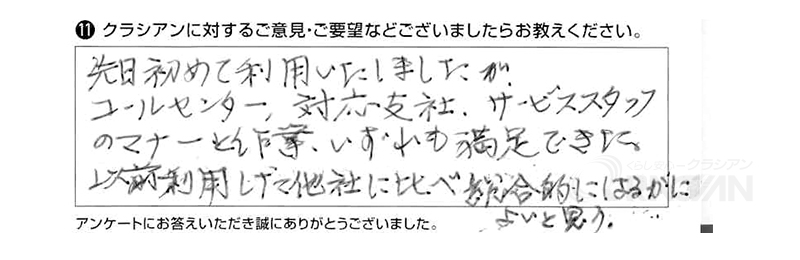 ⑪ クラシアンに対するご意見・ご要望などございましたらお教えください。
先日初めて利用いたしましたが、
コールセンター、対応支社、サービススタッフ
のマナーと作業、いずれも満足できた。
以前利用した他社に比べ総合的にはるかに
よいと思う。
アンケートにお答えいただき誠にありがとうございました。
クラシアン